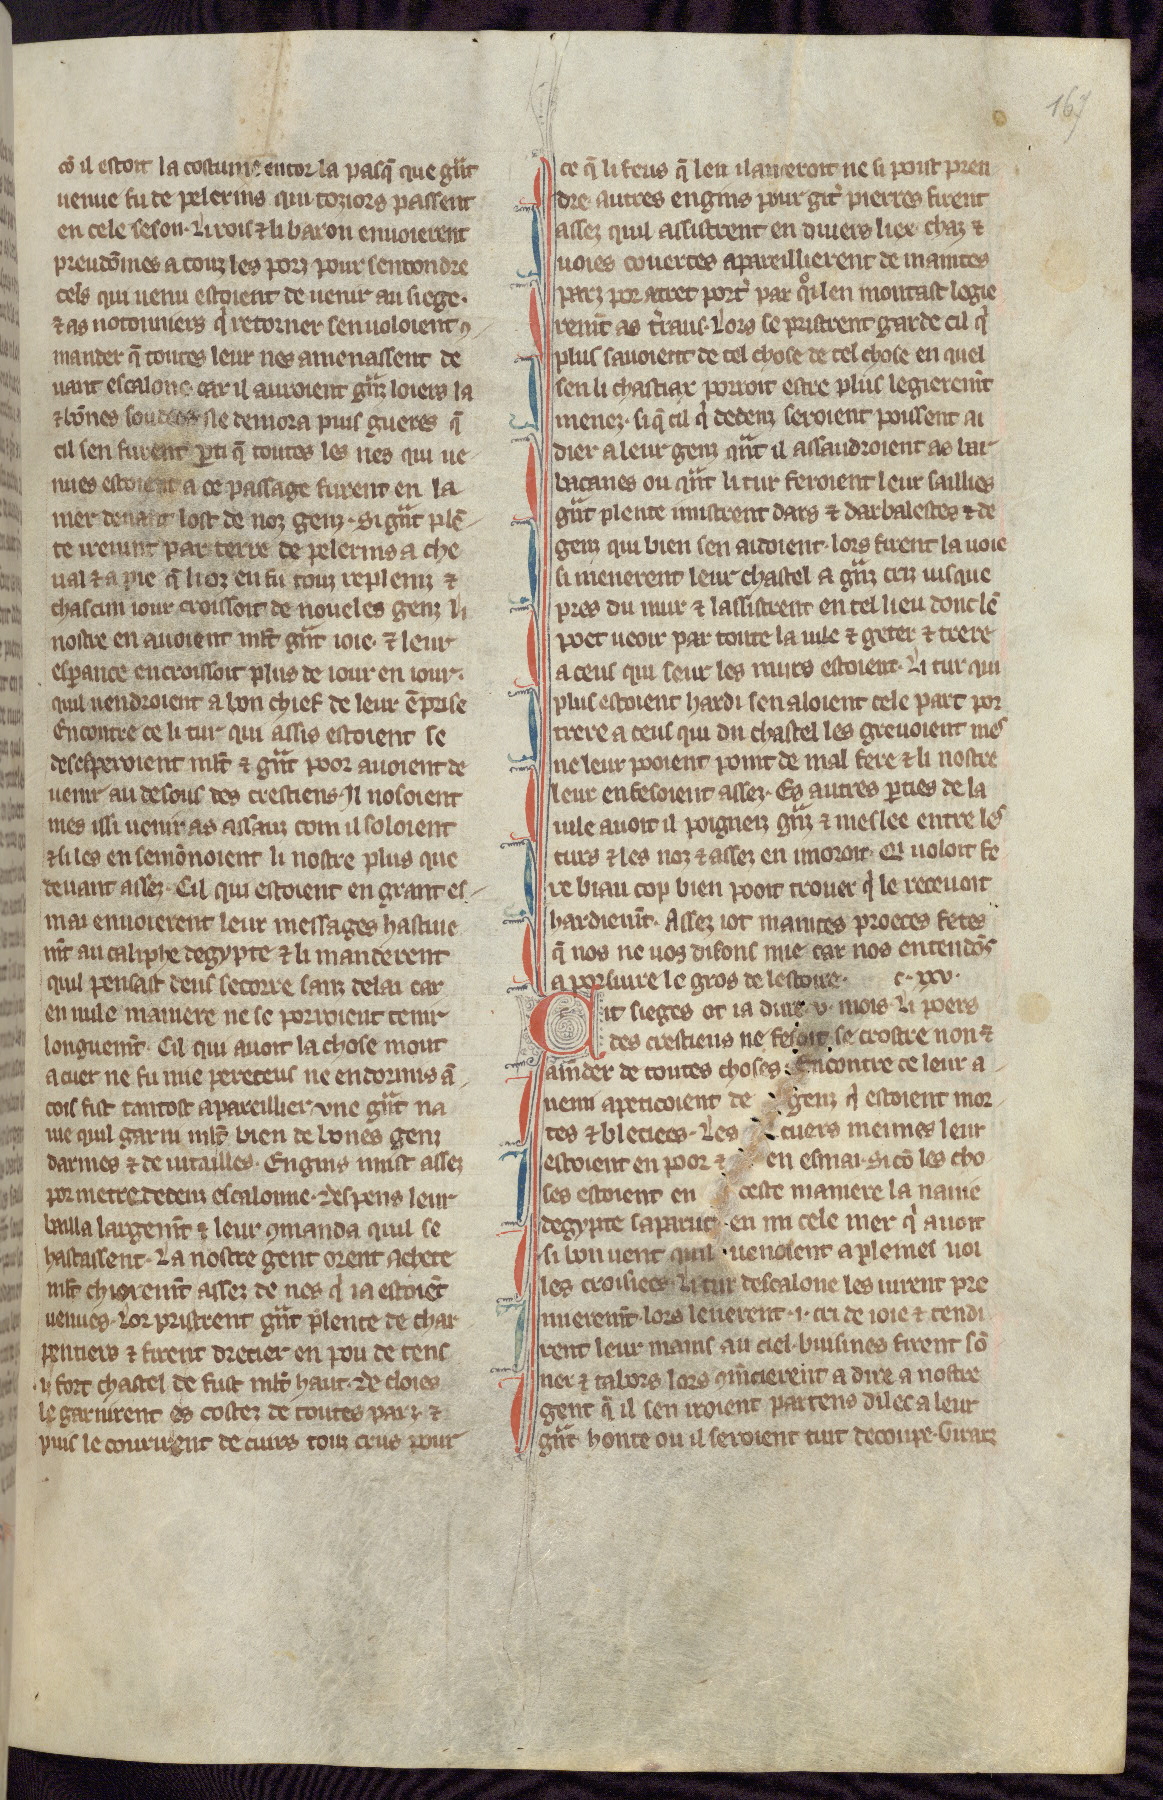 167
cō il estoit la costume entor la pasq̄ que gñt
uenue fu de pelerins qui toziors passent
en cele seson. Li rois ⁊ li baron enuoierent
preudōmes a touz les porz pour sentondre
cels qui uenu estoient de uenir au siege.
⁊ as notonniers q̇ retorner sen uoloient ꝯ
mander q̄ toutes leur nes amenassent de
uant escalone car il auroient gñz loiers la
⁊ bōnes soudees Ne demora puis gueres q̄
cil sen furent ꝑti q̄ toutes les nes qui ue
nues estoient a ce passage furent en la
mer deuant lost de noz genz. Si gñt plē
te ireuint par terre de pelerins a che
ual ⁊ a pie q̄ li oz en fu touz repleniz ⁊
chascun iour croissoit de noueles genz li
nostre en auoient ml̄t gñt ioie. ⁊ leur
esꝑance encroissoit plus de iour en iour.
quil uendroient a bon chief de leur ēprise
Encontre ce li tur qui assis estoient se
desesperoient ml̄t ⁊ gñt poor auoient de
uenir au desous des crestiens. Il nosoient
mes issi uenir as assauz com il soloient
⁊ si les en semōnoient li nostre plus que
deuant assez. Cil qui estoient en grant es
mai enuoierent leur messages hastiue
mt̄ au caliphe degypte ⁊ li manderent
quil pensast deus secorre sanz delai car
en nule maniere ne se porroient tenir
longuemt̄. Cil qui auoit la chose mout
a cuer ne fu mie pereceus ne endormis ā
cois fist tantost apareillier vne gñt na
uie quil garni ml̄t bien de bones genz
darmes ⁊ de uitailles. Engins mist assez
por metre dedenz escalonne. Despens leur
bailla largemt̄ ⁊ leur ꝯmanda quil se
hastassent. La nostre gent orent achete
ml̄t chieremt̄ assez de nes q̇ ia estoiēt
uenues. Lor pristrent gñt plente de char
pentiers ⁊ firent drecier en pou de tens
.i. fort chastel de fust ml̄t haut. De cloies
le garnirent es costez de toutes parz. ⁊
puis le courirent de cuirs touz crus pour
ce q̄ li feus q̄ len i lanceroit ne si poist pren
dre. autres engins pour git̄ pierres firent
assez quil assistrent en diuers liex chaz ⁊
uoies couertes apareillierent de maintes
parz por atret port̄ par q̊i len montast legie
remt̄ as t̄raus. Lors se pristrent garde cil q̇
plus sauoient de tel chose de tel chose en quel
sen li chastiax porroit estre plus legieremt̄
menez. si q̄ cil q̇ dedenz seroient poussent ai
dier a leur genz qñt il assaudroient as bar
bacanes ou qñt li tur feroient leur saillies
gñt plente imistrent dars ⁊ darbalestes ⁊ de
genz qui bien sen aidoient. lors firent la uoie
si menerent leur chastel a gñz criz iusque
pres du mur ⁊ lassistrent en tel lieu dont lē
poet ueoir par toute la uile ⁊ geter ⁊ trere
a ceus qui seur les murs estoient. Li tur qui
plus estoient hardi sen aloient cele part por
trere a ceus qui du chastel les greuoient mes
ne leur pooient point de mal fere ⁊ li nostre
leur en fesoient assez. Es autres ꝑties de la
uile auoit il poigneiz gñz ⁊ meslee entre les
turs ⁊ les noz ⁊ assez en imoroit. Q̇ uoloit fe
re biau cop bien pooit trouer q̇ le receuoit
hardiemt̄. Assez iot maintes proeces fetes
q̄ nos ne uos disons mie car nos entendōs
a porsuire le gros de lestoire. c. xv.
Cit sieges ot ia dure .v. mois. Li poers
des crestiens ne fesoit se crostre non ⁊
am̄der de toutes choses. Encontre ce leur a
nemi apeticoient de genz q̇ estoient mor
tes ⁊ bleciees. Les cuers meimes leur
estoient en poor ⁊ en esmai. Si cō les cho
ses estoient en ceste maniere la nauie
degypte saparut en mi cele mer q̇ auoit
si bon uent quil uenoient a plemes uoi
les croisiees. Li tur descalone les uirent pre
mieremt̄. lors leuerent .i. cri de ioie ⁊ tendi
rent leur mains au ciel. buisines firent sō
ner ⁊ tabors lors ꝯm̄cierent a dire a nostre
gent q̄ il sen iroient par tens dilec a leur
gñt honte ou il seroient tuit decoupe. Girarz